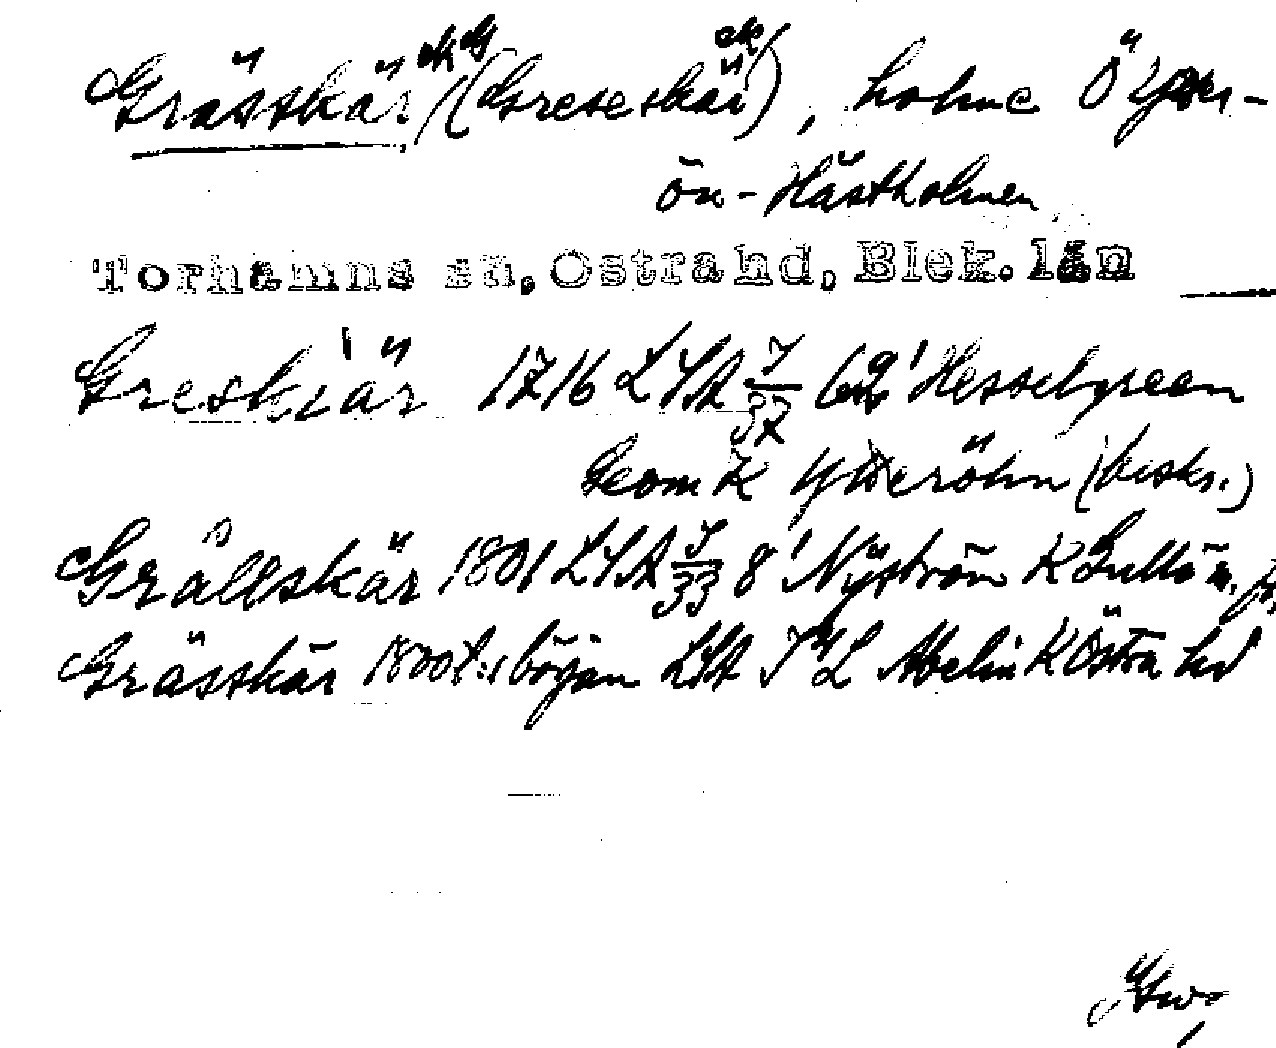 Grässkär ek G (Greseskär ek), holme Ö Ytter-
ön-Hästholmen
Torhamns sn, Östra hd, Blek. län
Greskiär 1716 LSA J/32 62¹ Hesselgreen
Geom K Ytteröhn (beskr.)
Grållskär 1801 LSA J/33 8¹ Nyström K Gullö
Grässkär 1800t:s början LSA J L Abelin K Östra hd